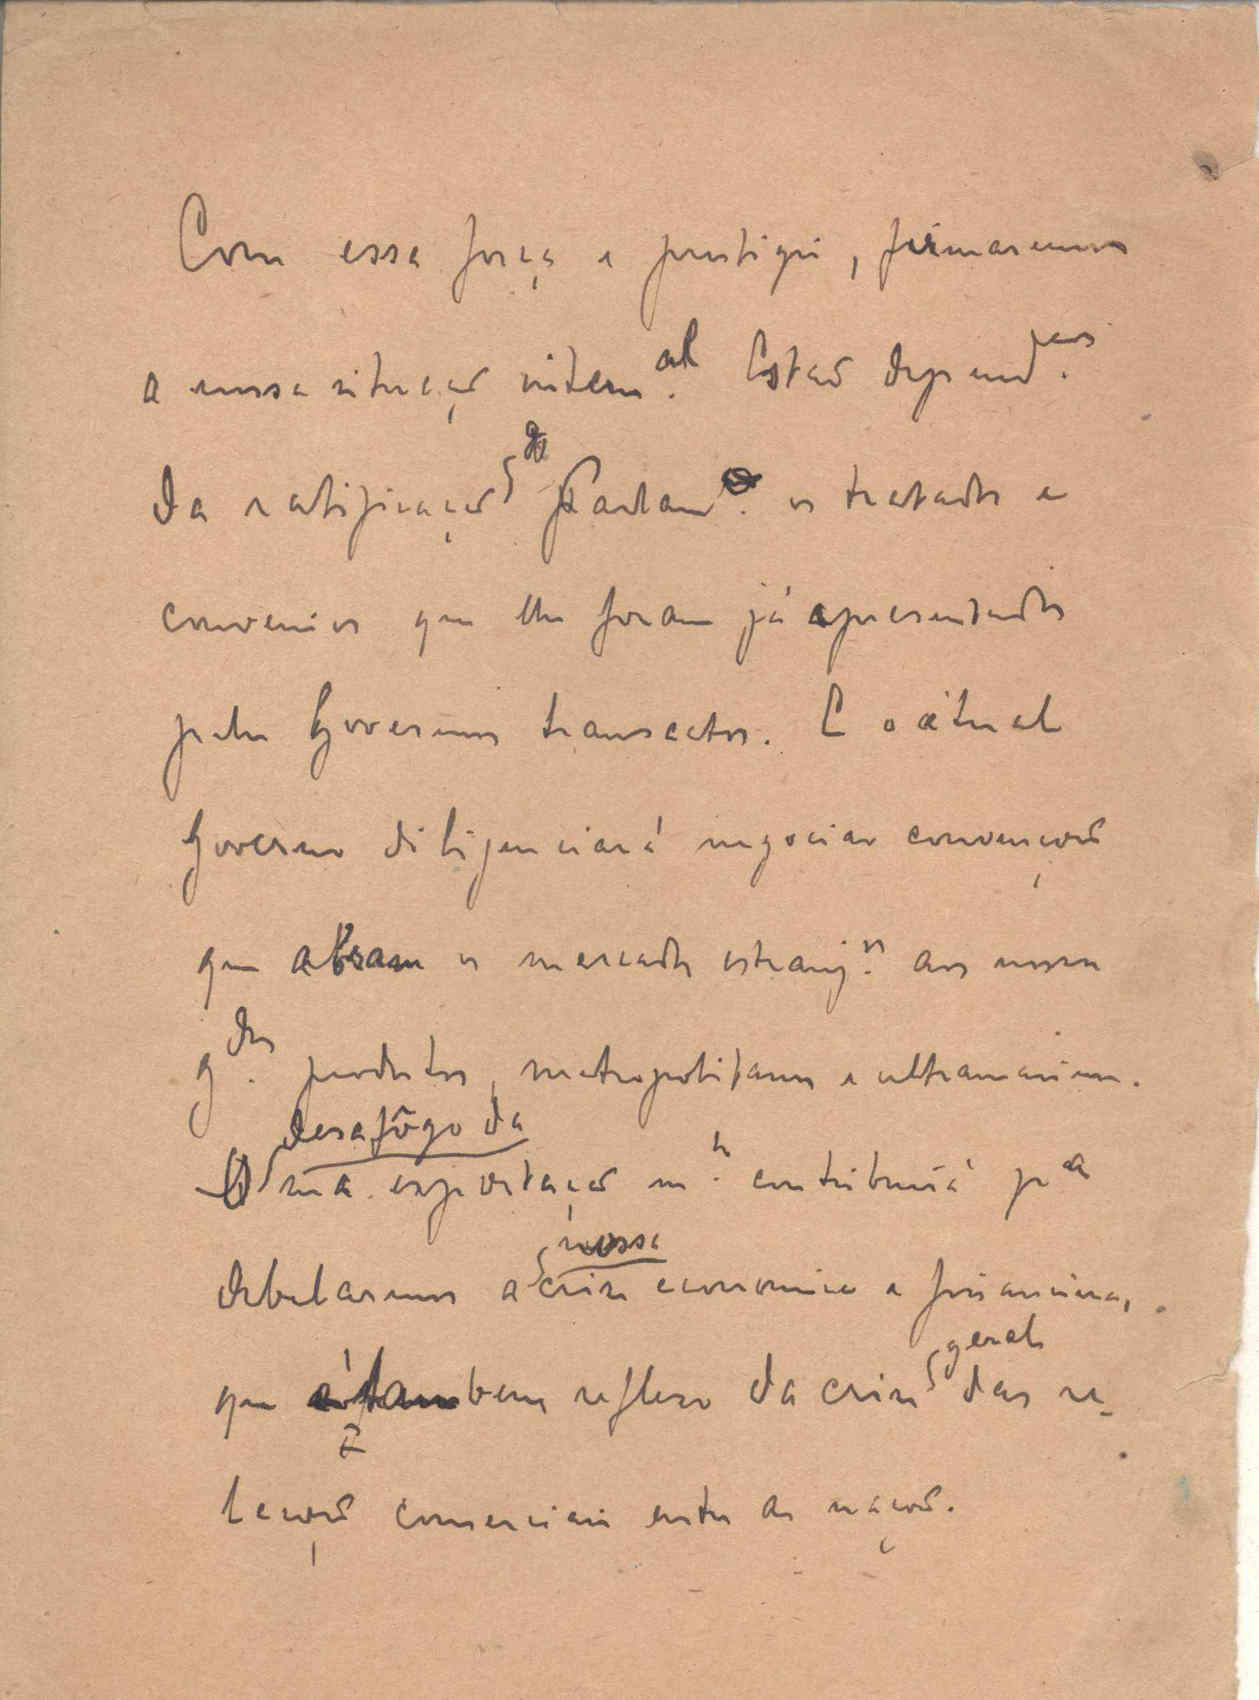 Com essa força e prestigio, firmaremos
a nossa situação intern.al Estão depend.tes
da ratificação do Parlam.to os tratados e
convenios que lhe foram já apresentados
pelos Governos transactos. E o átual
Governo diligenciará negociar convenções
que abram os mercados estranj.ros aos nossos
g.des produtos, metropolitanos e ultramarinos.
desafôgo da
O na exportação m.to contribuirá pa
nossa
debelarmos a crise economica e financeira,
geral
que é tambem reflexo da crise das re-
lações comerciais entre as nações.